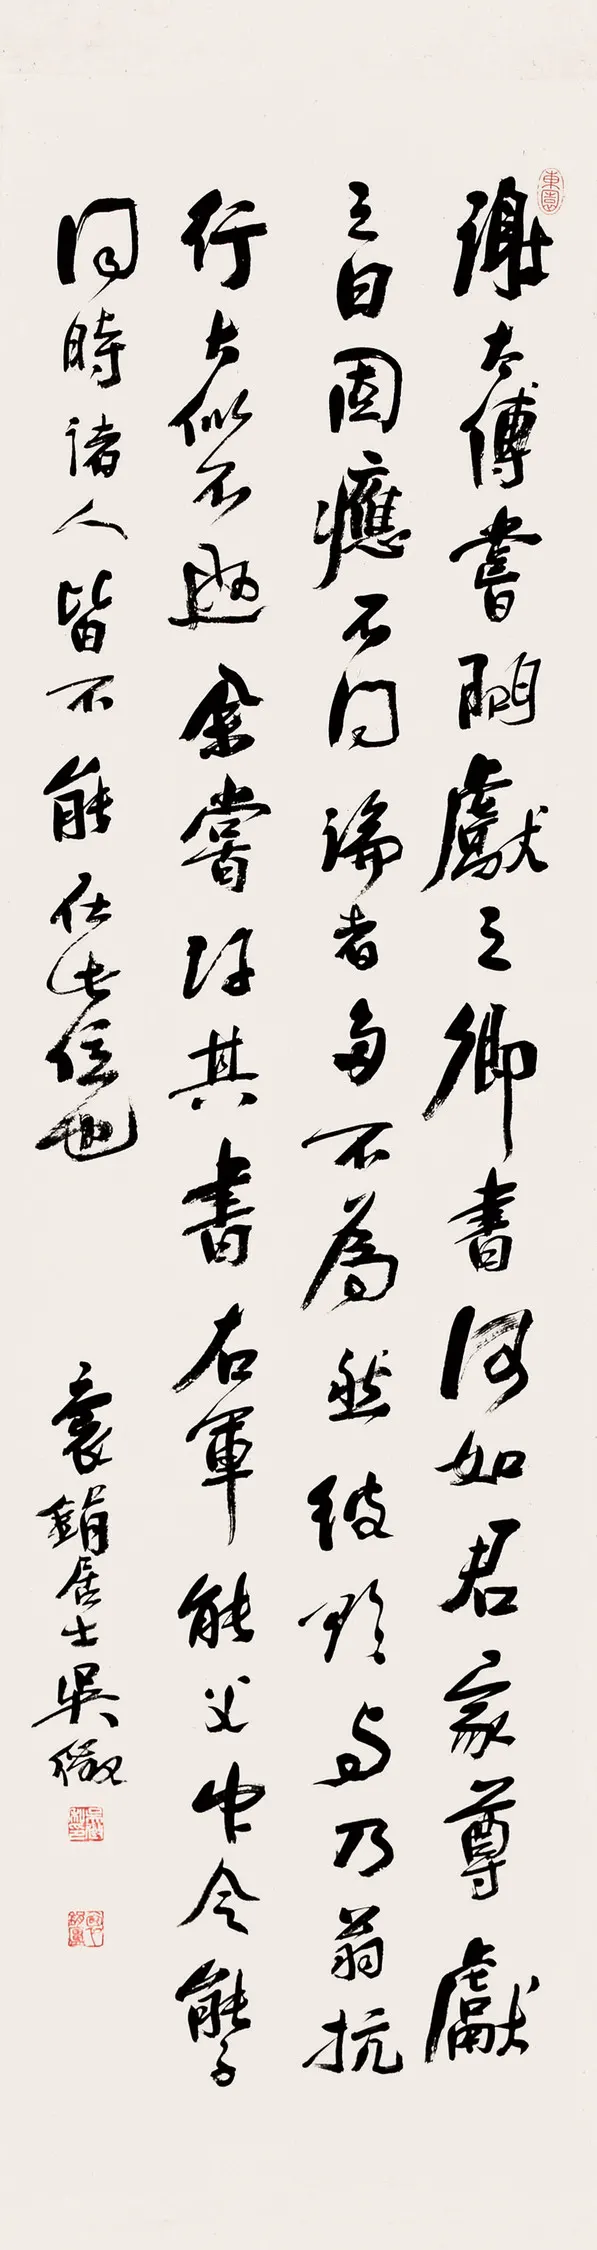 東園
謝太傅嘗問獻之卿書何如君家尊獻
之曰固應不同論者多不為然彼欲与乃翁抗
行大似不遜余嘗評其書右軍能父中令能子
同時諸人皆不能任此位也
蓑鋗居士吳徵